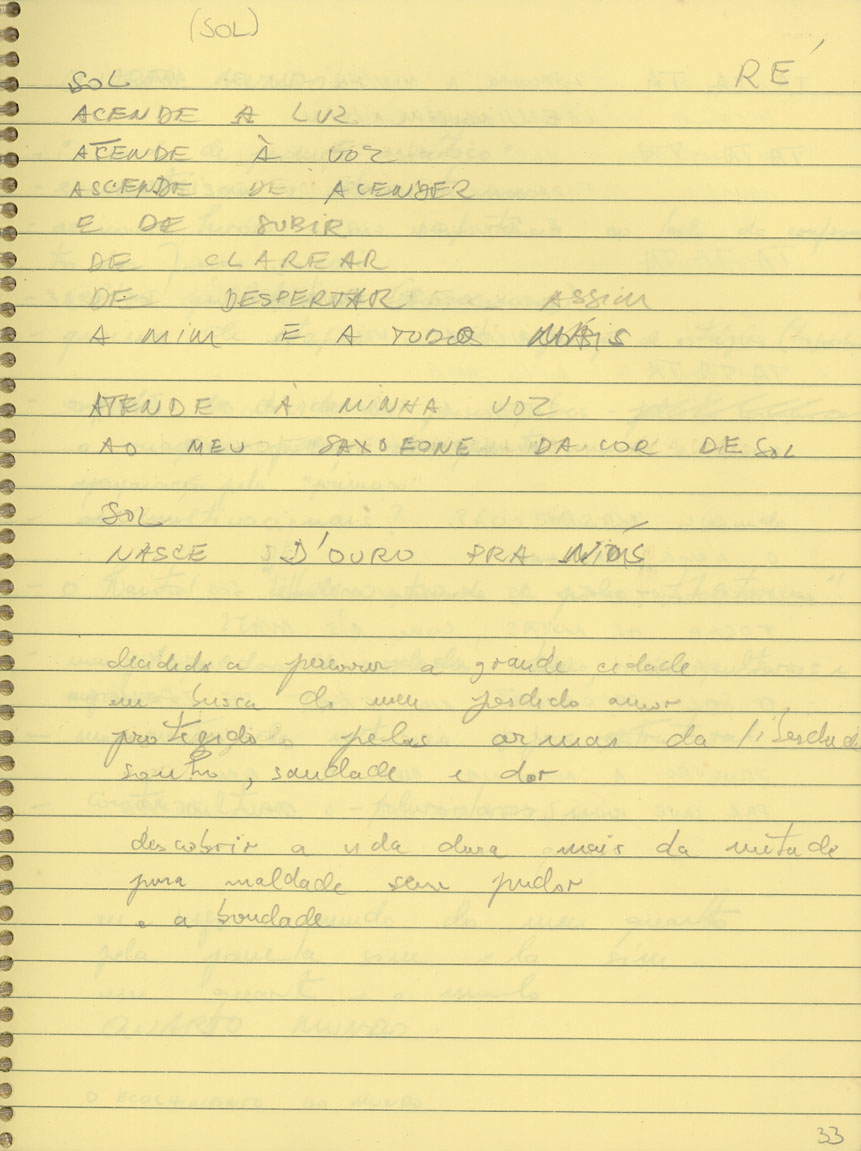 (SOL)
RÉ
SOL
ACENDE A LUZ
ATENDE À VOZ
ASCENDE DE ACENDER
E DE SUBIR
DE CLAREAR
DE DESPERTAR ASSIM
A MIM E A TODOS
ATENDE À MINHA VOZ
AO MEU SAXOFONE DA COR DE SOL
SOL
NASCE D'OURO PRA NÓS
decidido a percorrer a grande cidade
em busca do meu perdido amor
protegido pelas armas da liberdade
sonho, saudade e dor
descobrir a vida dura mais da metade
pura maldade sem pudor
e a bondade
33